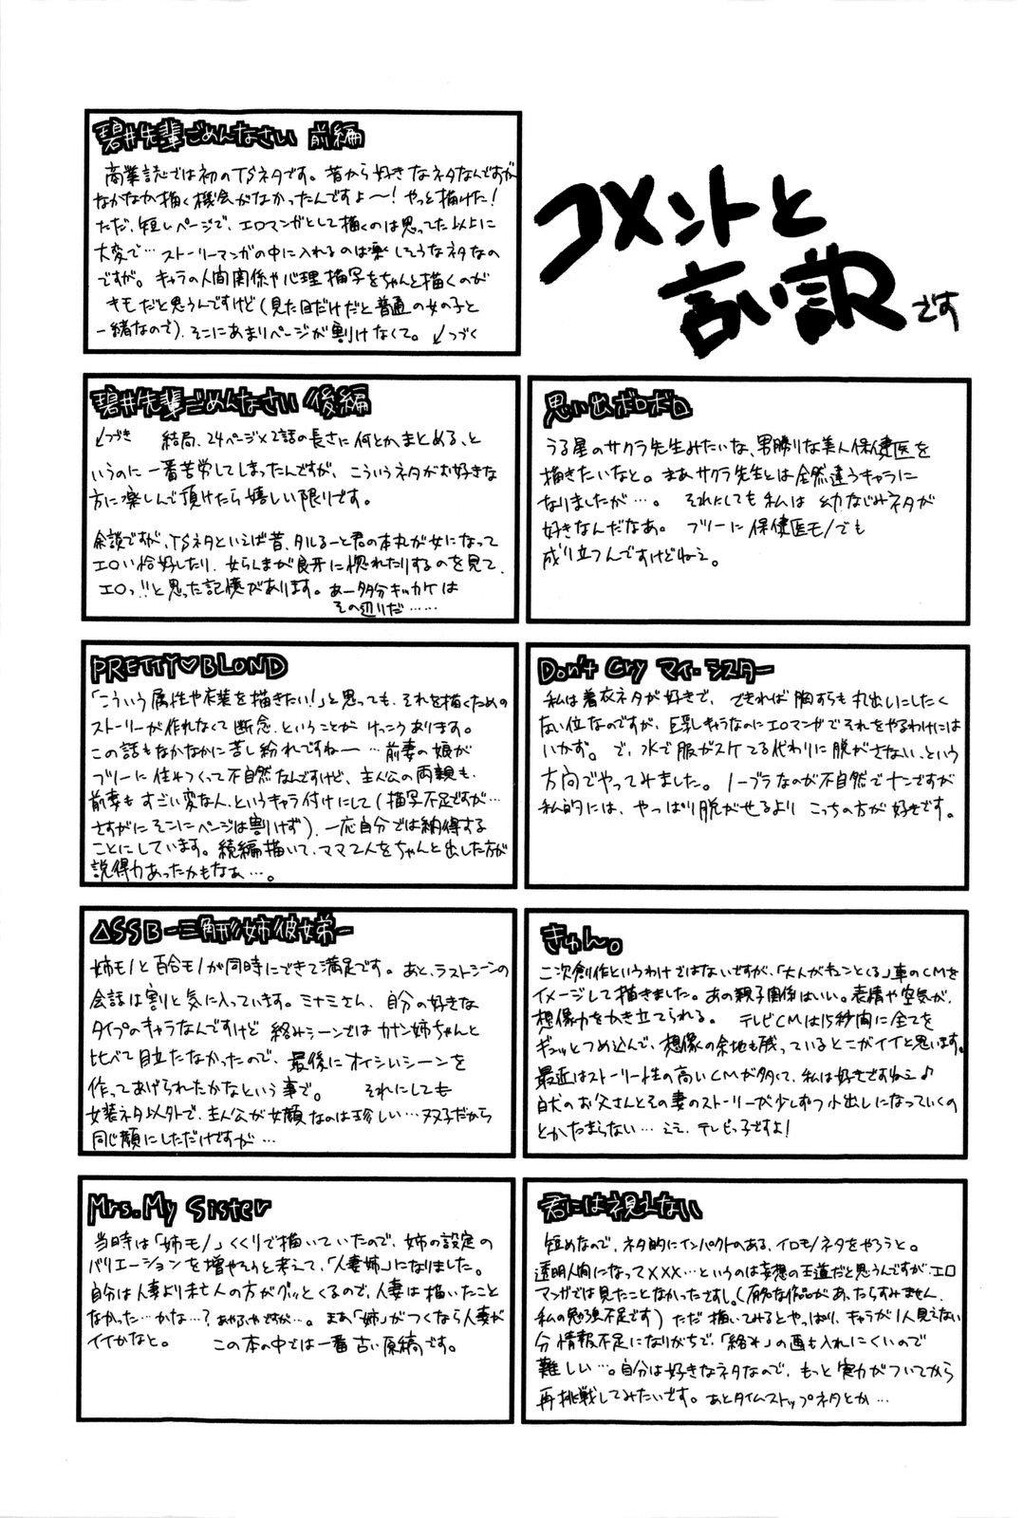 コメントと
言い訳です
碧井先輩ごめんなさい 前編
商業誌では初のTSネタです。昔から好きなネタなんですが
なかなか描く機会がなかったんですよ〜!やっと描けた!
ただ、短いページで、エロマンガとして描くのは思ってた以上に
大変で…ストーリーマンガの中に入れるのは楽しそうなネタなの
ですが。キャラの人間関係や心理描写をちゃんと描くのが
キモだと思うんですけど(見た目だけだと普通の女の子と
一緒なので)、そこにあまりページが割けなくて。↙つづく
碧井先輩ごめんなさい 後編
↖つづき 結局、24ページ×2話の長さに何とかまとめる、と
いうのに一番苦労してしまったんですが、こういうネタがお好きな
方に楽しんで頂けたら嬉しい限りです。
余談ですが、TSネタといえば昔、タルるートの本丸が女になって
エロい恰好したり、女らしまが良牙に惚れたりするのを見て、
エロっ!!と思った記憶があります。あー多分キッカケは
その辺りだ……
思い出ボロボロ
うる星のサクラ先生みたいな、男勝りな美人保健医を
描きたいなと。まあサクラ先生とは全然違うキャラに
なりましたが…。 それにしても私は幼なじみネタが
好きなんだなあ。 フツーに保健医モノでも
成り立つんですけどねえ。
PRETTY♡BLOND
「こういう属性や衣装を描きたい!」と思っても、それを描くための
ストーリーが作れなくて断念、ということがけっこうあります。
この話もなかなかに苦し紛れですねー…前妻の娘が
フツーに住みつくって不自然なんですけど、主人公の両親も、
前妻もすごい変な人、というキャラ付けにして(描写不足ですが…
さすがにそこにページは割けず)、一応自分では納得する
ことにしています。続編描いて、ママ2人をちゃんと出した方が
説得力あったかもなぁ…。
Don't Cry マイ・シスター
私は着衣ネタが好きで、できれば胸すらも丸出しにしたく
ない位なのですが、巨乳キャラなのにエロマンガでそれをやるわけには
いかず。で、水で服がスケてる代わりに脱がさない、という
方向でやってみました。ノーブラなのが不自然でナンですが
私的には、やっぱり脱がせるよりこっちの方が好きです。
△SSB-三角形姉彼女弟-
姉モノと百合モノが同時にできて満足です。あと、ラストシーンの
会話は割と気に入っています。ミナミさん、自分の好きな
タイプのキャラなんですけど絡みシーンではカナン姉ちゃんと
比べて目立たなかったので、最後にオイシいシーンを
作ってあげられたかなという事で。 それにしても
女装ネタ以外で、主人公が女顔なのは珍しい…双子だから
同じ顔にしただけですが…
きゅん。
二次創作というわけではないですが、「大人がキュンとくる」車のCMを
イメージして描きました。あの親子関係はいい。表情や空気が、
想像力をかき立てられる。 テレビCMは15秒間に全てを
ギュッとつめ込んで、想像の余地も残っているとこがイイと思います。
最近はストーリー性の高いCMが多くて、私は好きですねえ♪
白犬のお父さんとその妻のストーリーが少しずつ小出しになっていくの
とかたまらない…ええ、テレビっ子ですよ!
Mrs.My Sister
当時は「姉モノ」くくりで描いていたので、姉の設定の
バリエーションを増やそうと考えて、「人妻姉」になりました。
自分は人妻より未亡人の方がグッとくるので、人妻は描いたこと
なかった…かな…?あやふやですが…。まあ「姉」がつくなら人妻が
イイかなと。 この本の中では一番古い原稿です。
君には視えない
短めなので、ネタ的にインパクトのある、イロモノネタをやろうと。
透明人間になって×××…というのは妄想の王道だと思うんですが、エロ
マンガでは見たことなかったですし。(有名な作品があったらすみません、
私の勉強不足です)ただ描いてみるとやっぱり、キャラが1人見えない
分情報不足になりがちで、「絡み」の画も入れにくいので
難しい…。自分は好きなネタなので、もっと実力がついてから
再挑戦してみたいです。あとタイムストップネタとか…